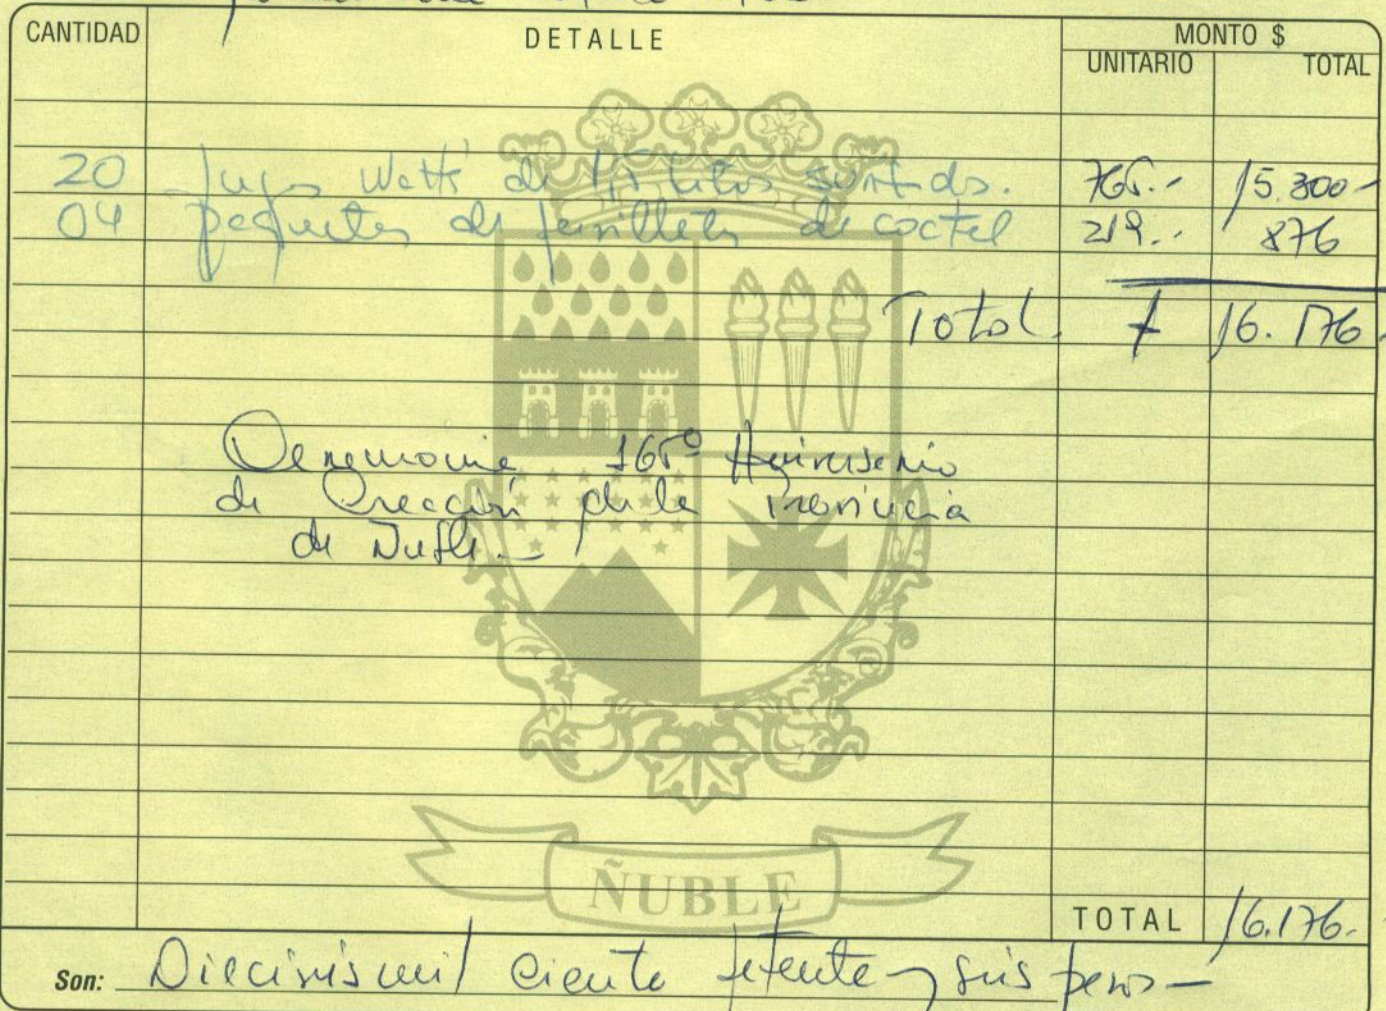 CANTIDAD DETALLE MONTO $
UNITARIO TOTAL
20 Jugos Watt's de 1,5 litros surtidos. 765.- 15.300-
04 paquetes de servilletas de coctel 219.- 876
Total 16.176
Ceremonia 165º Aniversario
de Creación de la Provincia
de Ñuble.-
ÑUBLE
TOTAL 16.176.-
Son: Dieciseis mil ciento setenta y seis pesos-